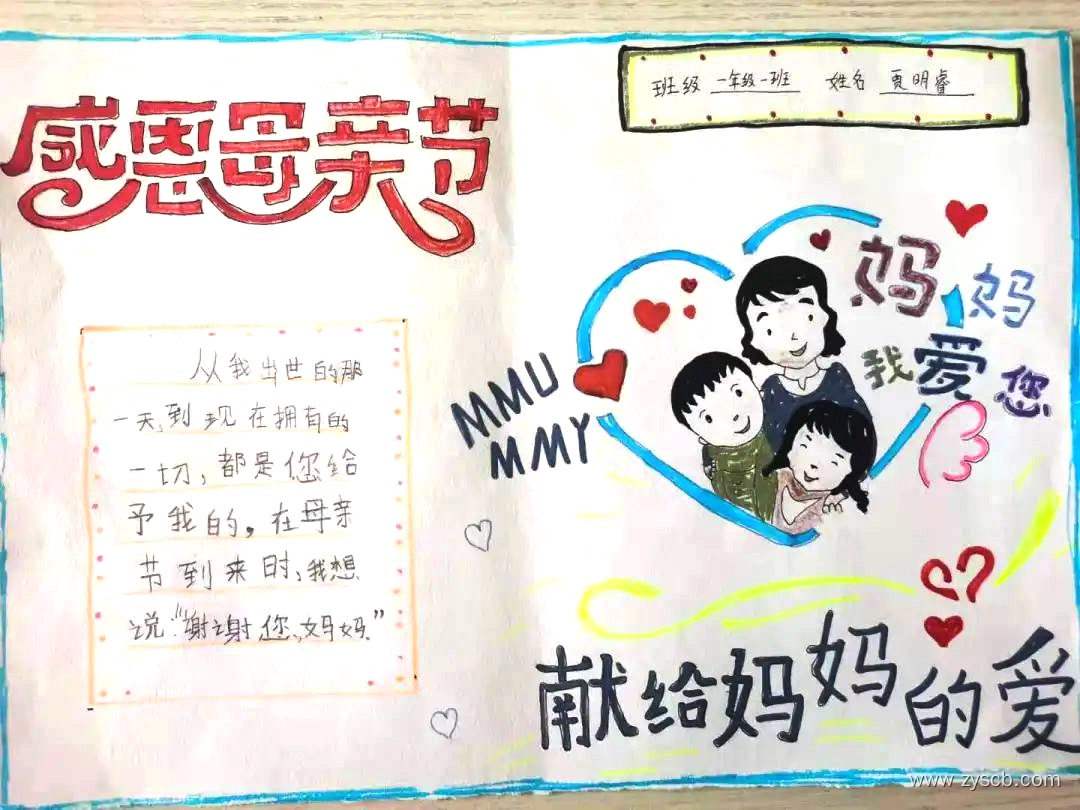 感恩母亲节
班级 一年级一班 姓名 贾明睿
从我出世的那
一天,到现在拥有的
一切,都是您给
予我的,在母亲
节到来时,我想
说“谢谢您,妈妈”
妈妈
我爱您
MMU
MMY
献给妈妈的爱
www.zyscb.com